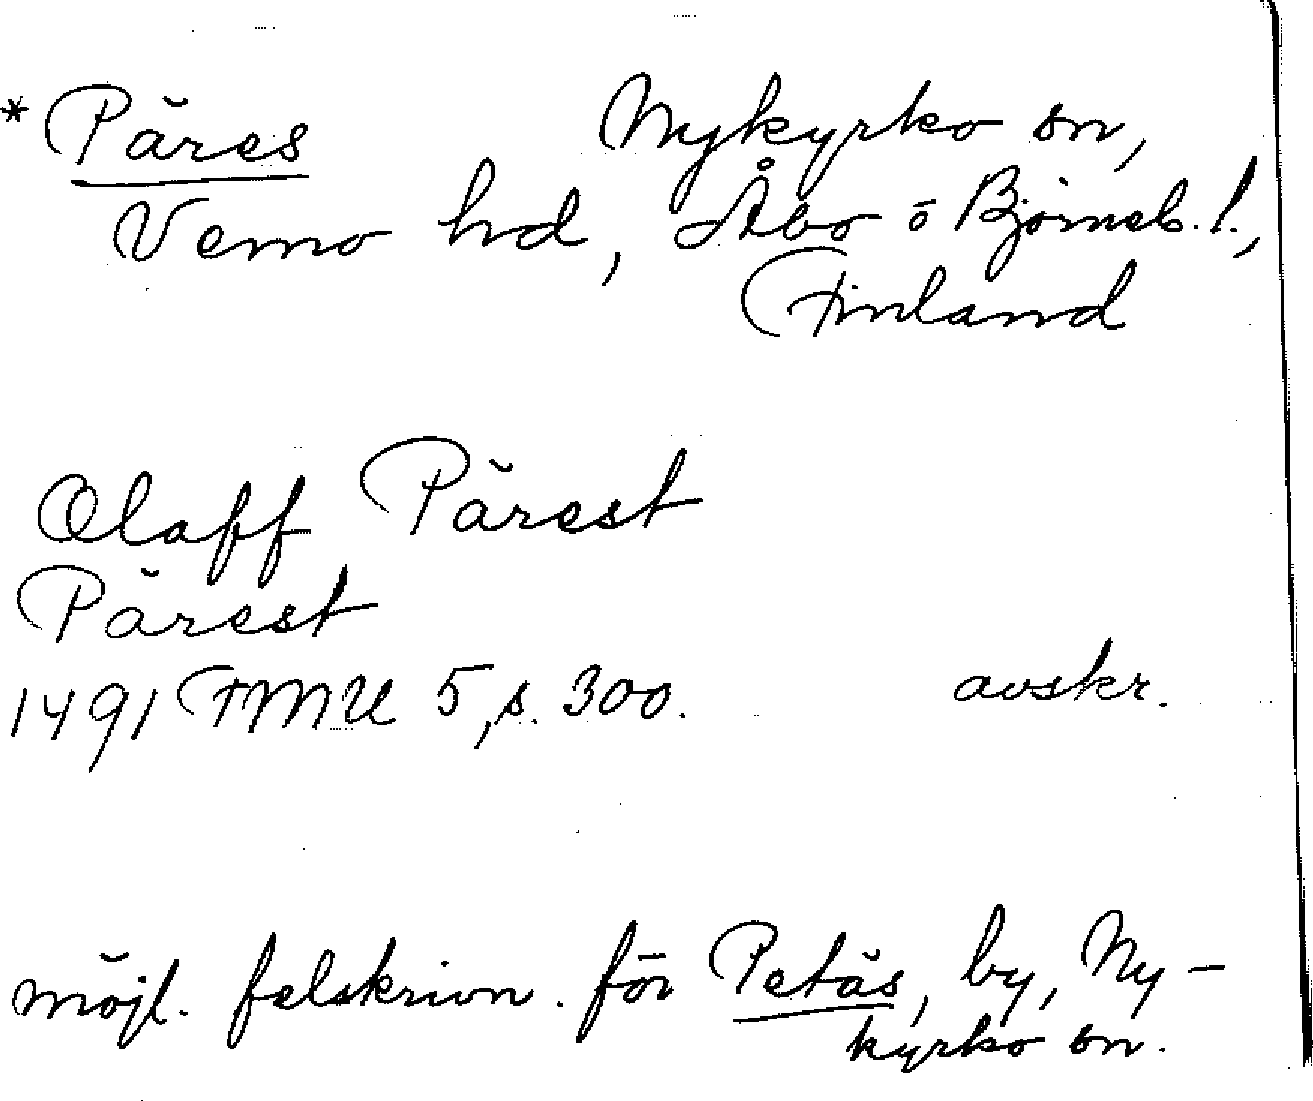 * Päres Nykyrko sn,
Vemo hd, Åbo o Björneb. l.,
Finland
Olaff Pärest
Pärest
1491 FMU 5, s. 300. avskr.
möjl. felskrivn. för Petäs, by, Ny-
kyrko sn.